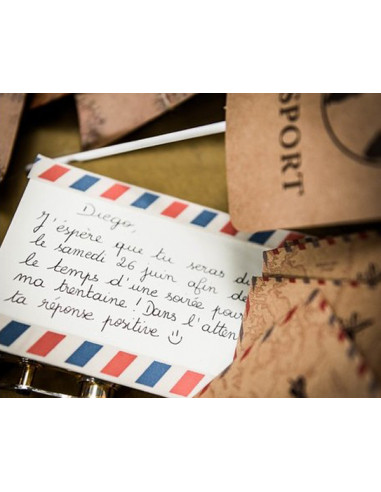 Diego,
J'espère que tu seras
le samedi 26 juin afin de
le temps d'une soirée pour
ma trentaine ! Dans l'atten
ta réponse positive ☺
SPORT